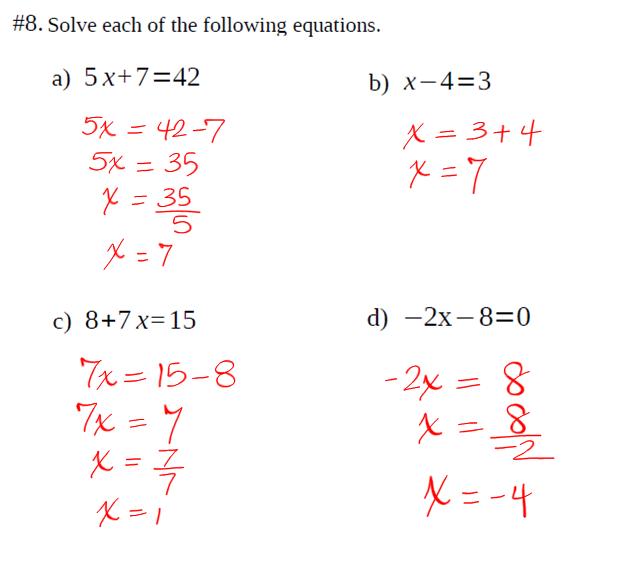 #8. Solve each of the following equations.
a) 5x+7=42
5x = 42-7
5x = 35
x = 35
5
x = 7
b) x−4=3
x = 3+4
x = 7
c) 8+7x=15
7x = 15-8
7x = 7
x = 7
7
x = 1
d) −2x−8=0
-2x = 8
x = 8
-2
x = -4